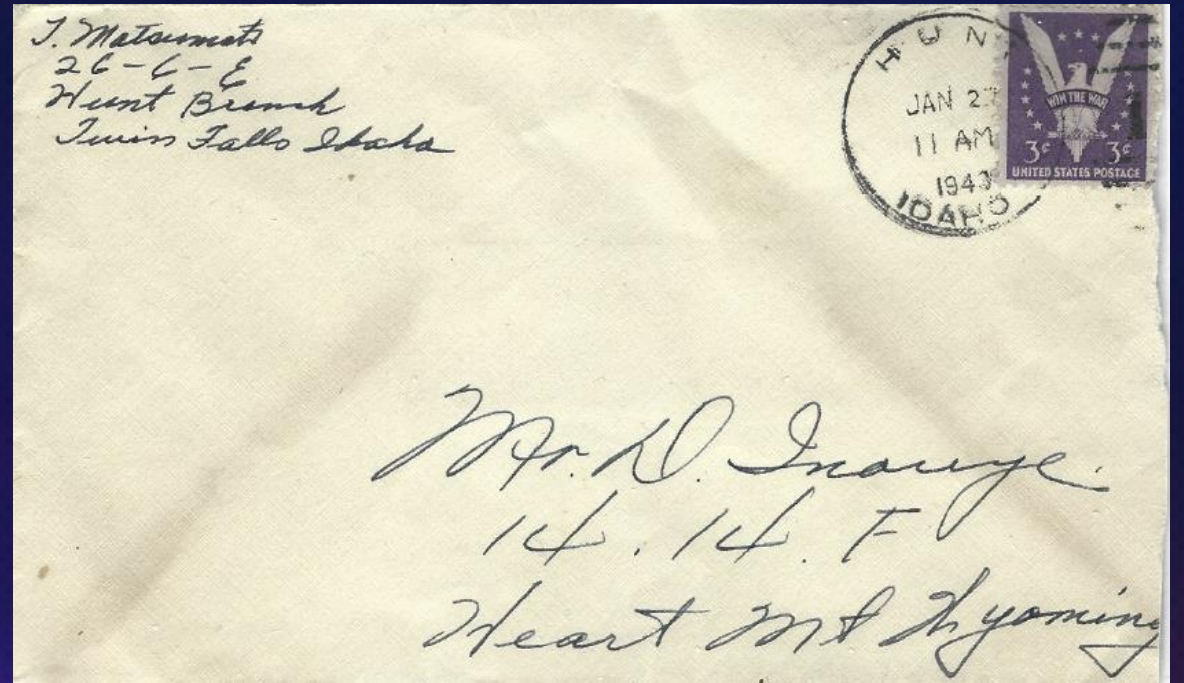 T. Matsumoto
26-6-E
Hunt Branch
Twin Falls Idaho
HUNT
JAN 27
11 AM
1943
IDAHO
WIN THE WAR
3¢ 3¢
UNITED STATES POSTAGE
Mr. D. Inouye.
14. 14. F
Heart Mt Wyoming